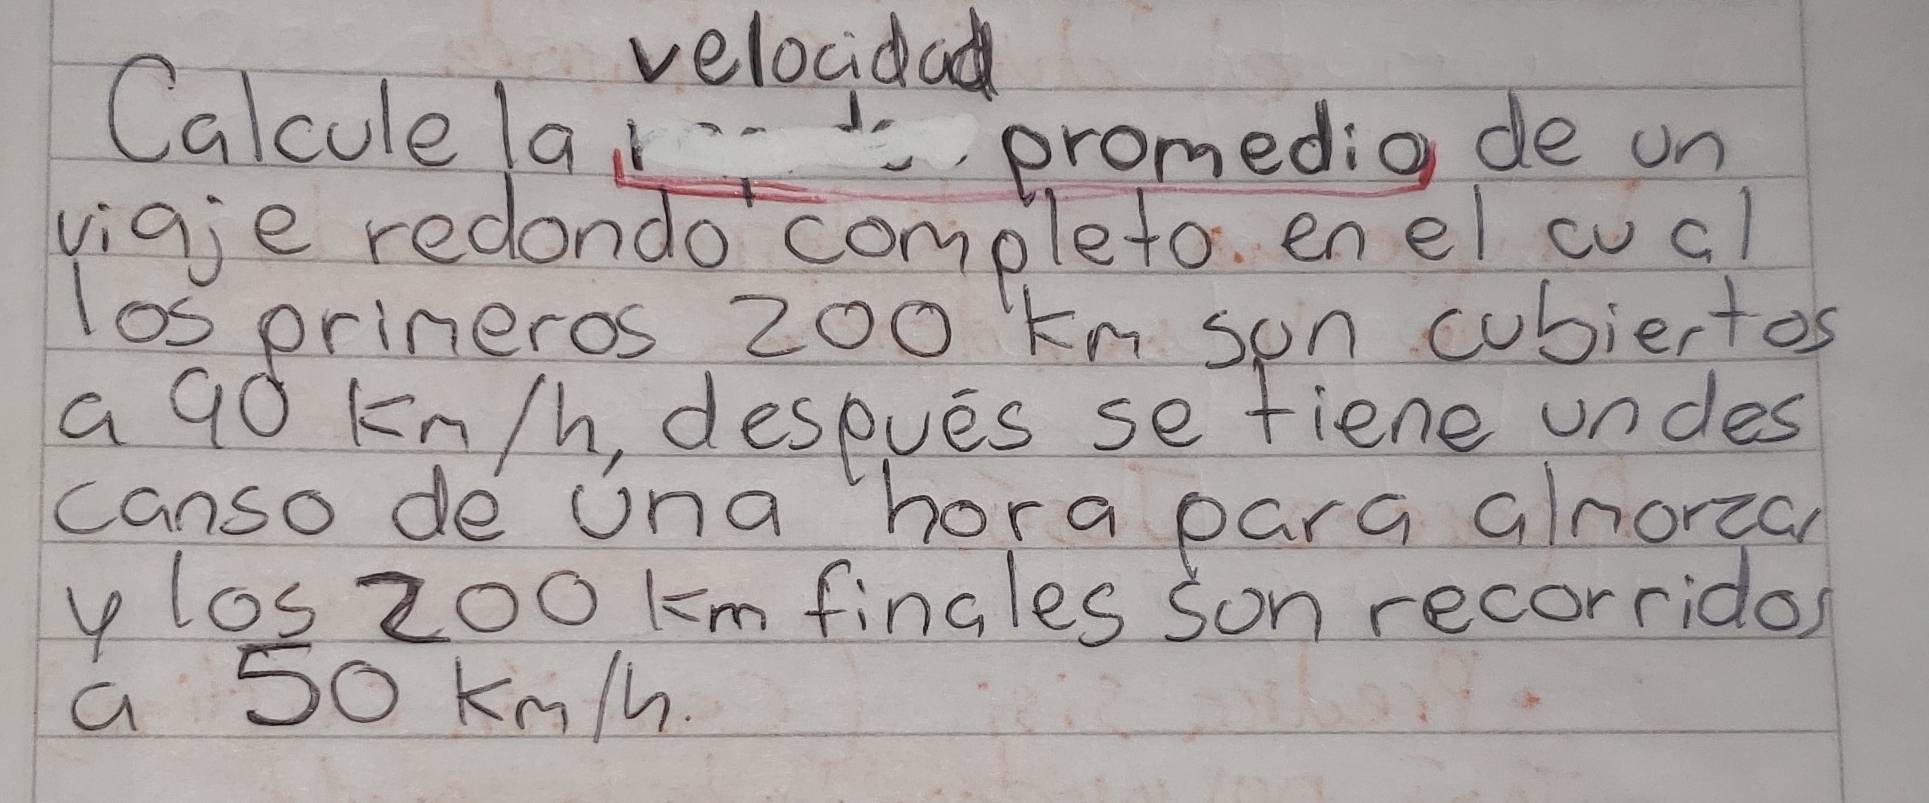 velocidad
Calcule la promedio de un
viaje redondo completo. en el cual
los primeros 200 km son cubiertos
a 90 km/h, después se tiene un des
canso de una hora para almorzar
y los 200 km finales son recorridos
a 50 km/h.